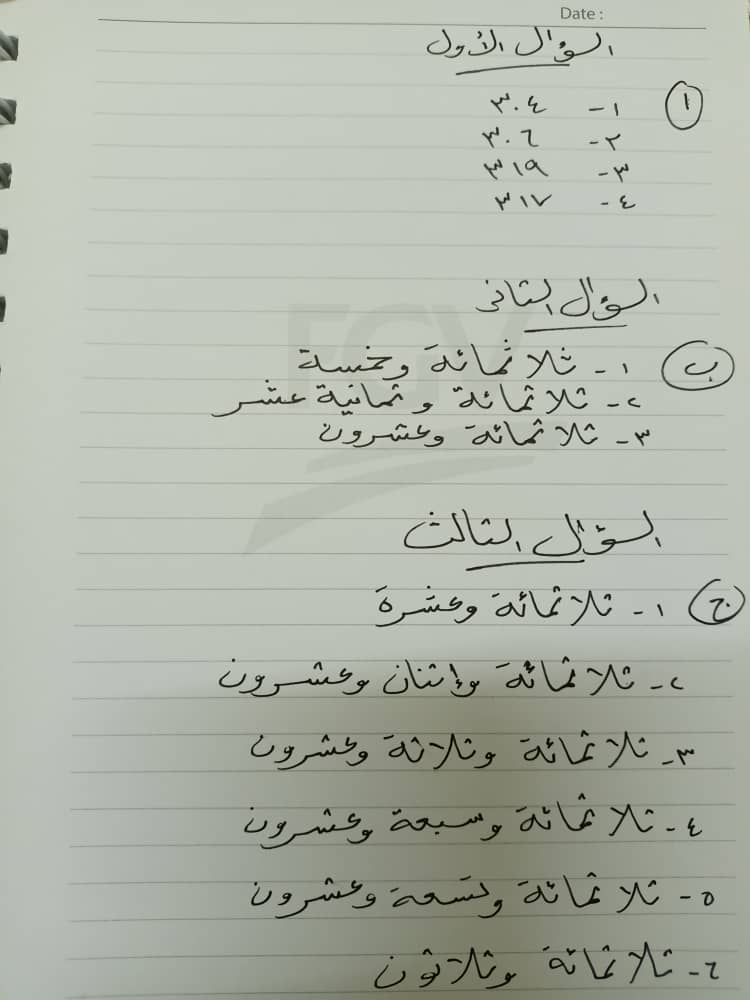 Date :
السؤال الأول
١ ١- ٣٠٤
٢- ٣٠٦
٣- ٣١٩
٤- ٣١٧
السؤال الثاني
ب ١- ثلاثمائة وخمسة
٢- ثلاثمائة وثمانية عشر
٣- ثلاثمائة وعشرون
السؤال الثالث
ج ١- ثلاثمائة وعشرة
٢- ثلاثمائة وإثنان وعشرون
٣- ثلاثمائة وثلاثة وعشرون
٤- ثلاثمائة وسبعة وعشرون
٥- ثلاثمائة وتسعة وعشرون
٦- ثلاثمائة وثلاثون